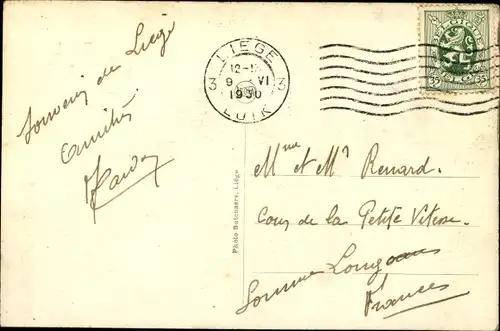 Souvenir de Liège
Amitiés
LIEGE
12-1
3 9 VI 3
1930
LUIK
BELGIQUE
35 35
Photo Butenaers, Liége
Mme et Mr Renard.
Cour de la Petite Vitesse.
France